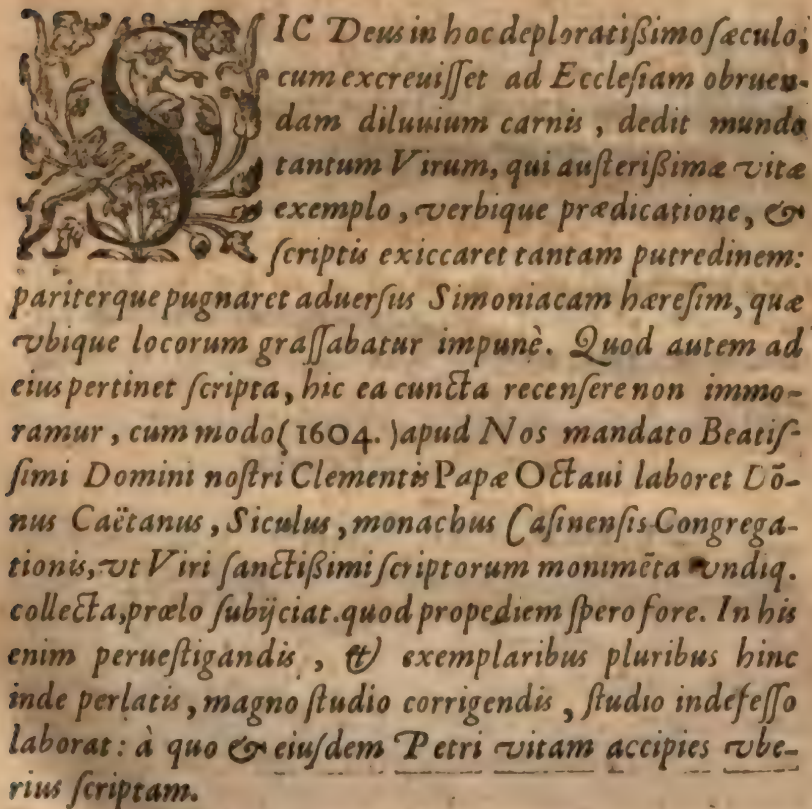 SIC Deus in hoc deploratißimo ſæculo,
cum excreuiſſet ad Eccleſiam obruen-
dam diluuium carnis, dedit mundo
tantum Virum, qui auſterißimæ vitæ
exemplo, verbique prædicatione, &
ſcriptis exiccaret tantam putredinem:
pariterque pugnaret aduerſus Simoniacam hæreſim, quæ
vbique locorum graſſabatur impunè. Quod autem ad
eius pertinet ſcripta, hic ea cuncta recenſere non immo-
ramur, cum modo (1604.) apud Nos mandato Beatiſ-
ſimi Domini noſtri Clementis Papæ Octaui laboret Dō-
nus Caëtanus, Siculus, monachus Caſinenſis Congrega-
tionis, vt Viri ſanctißimi ſcriptorum monimēta vndiq.
collecta, prælo ſubijciat. quod propediem ſpero fore. In his
enim perueſtigandis, & exemplaribus pluribus hinc
inde perlatis, magno ſtudio corrigendis, ſtudio indefeſſo
laborat: à quo & eiuſdem Petri vitam accipies vbe-
rius ſcriptam.